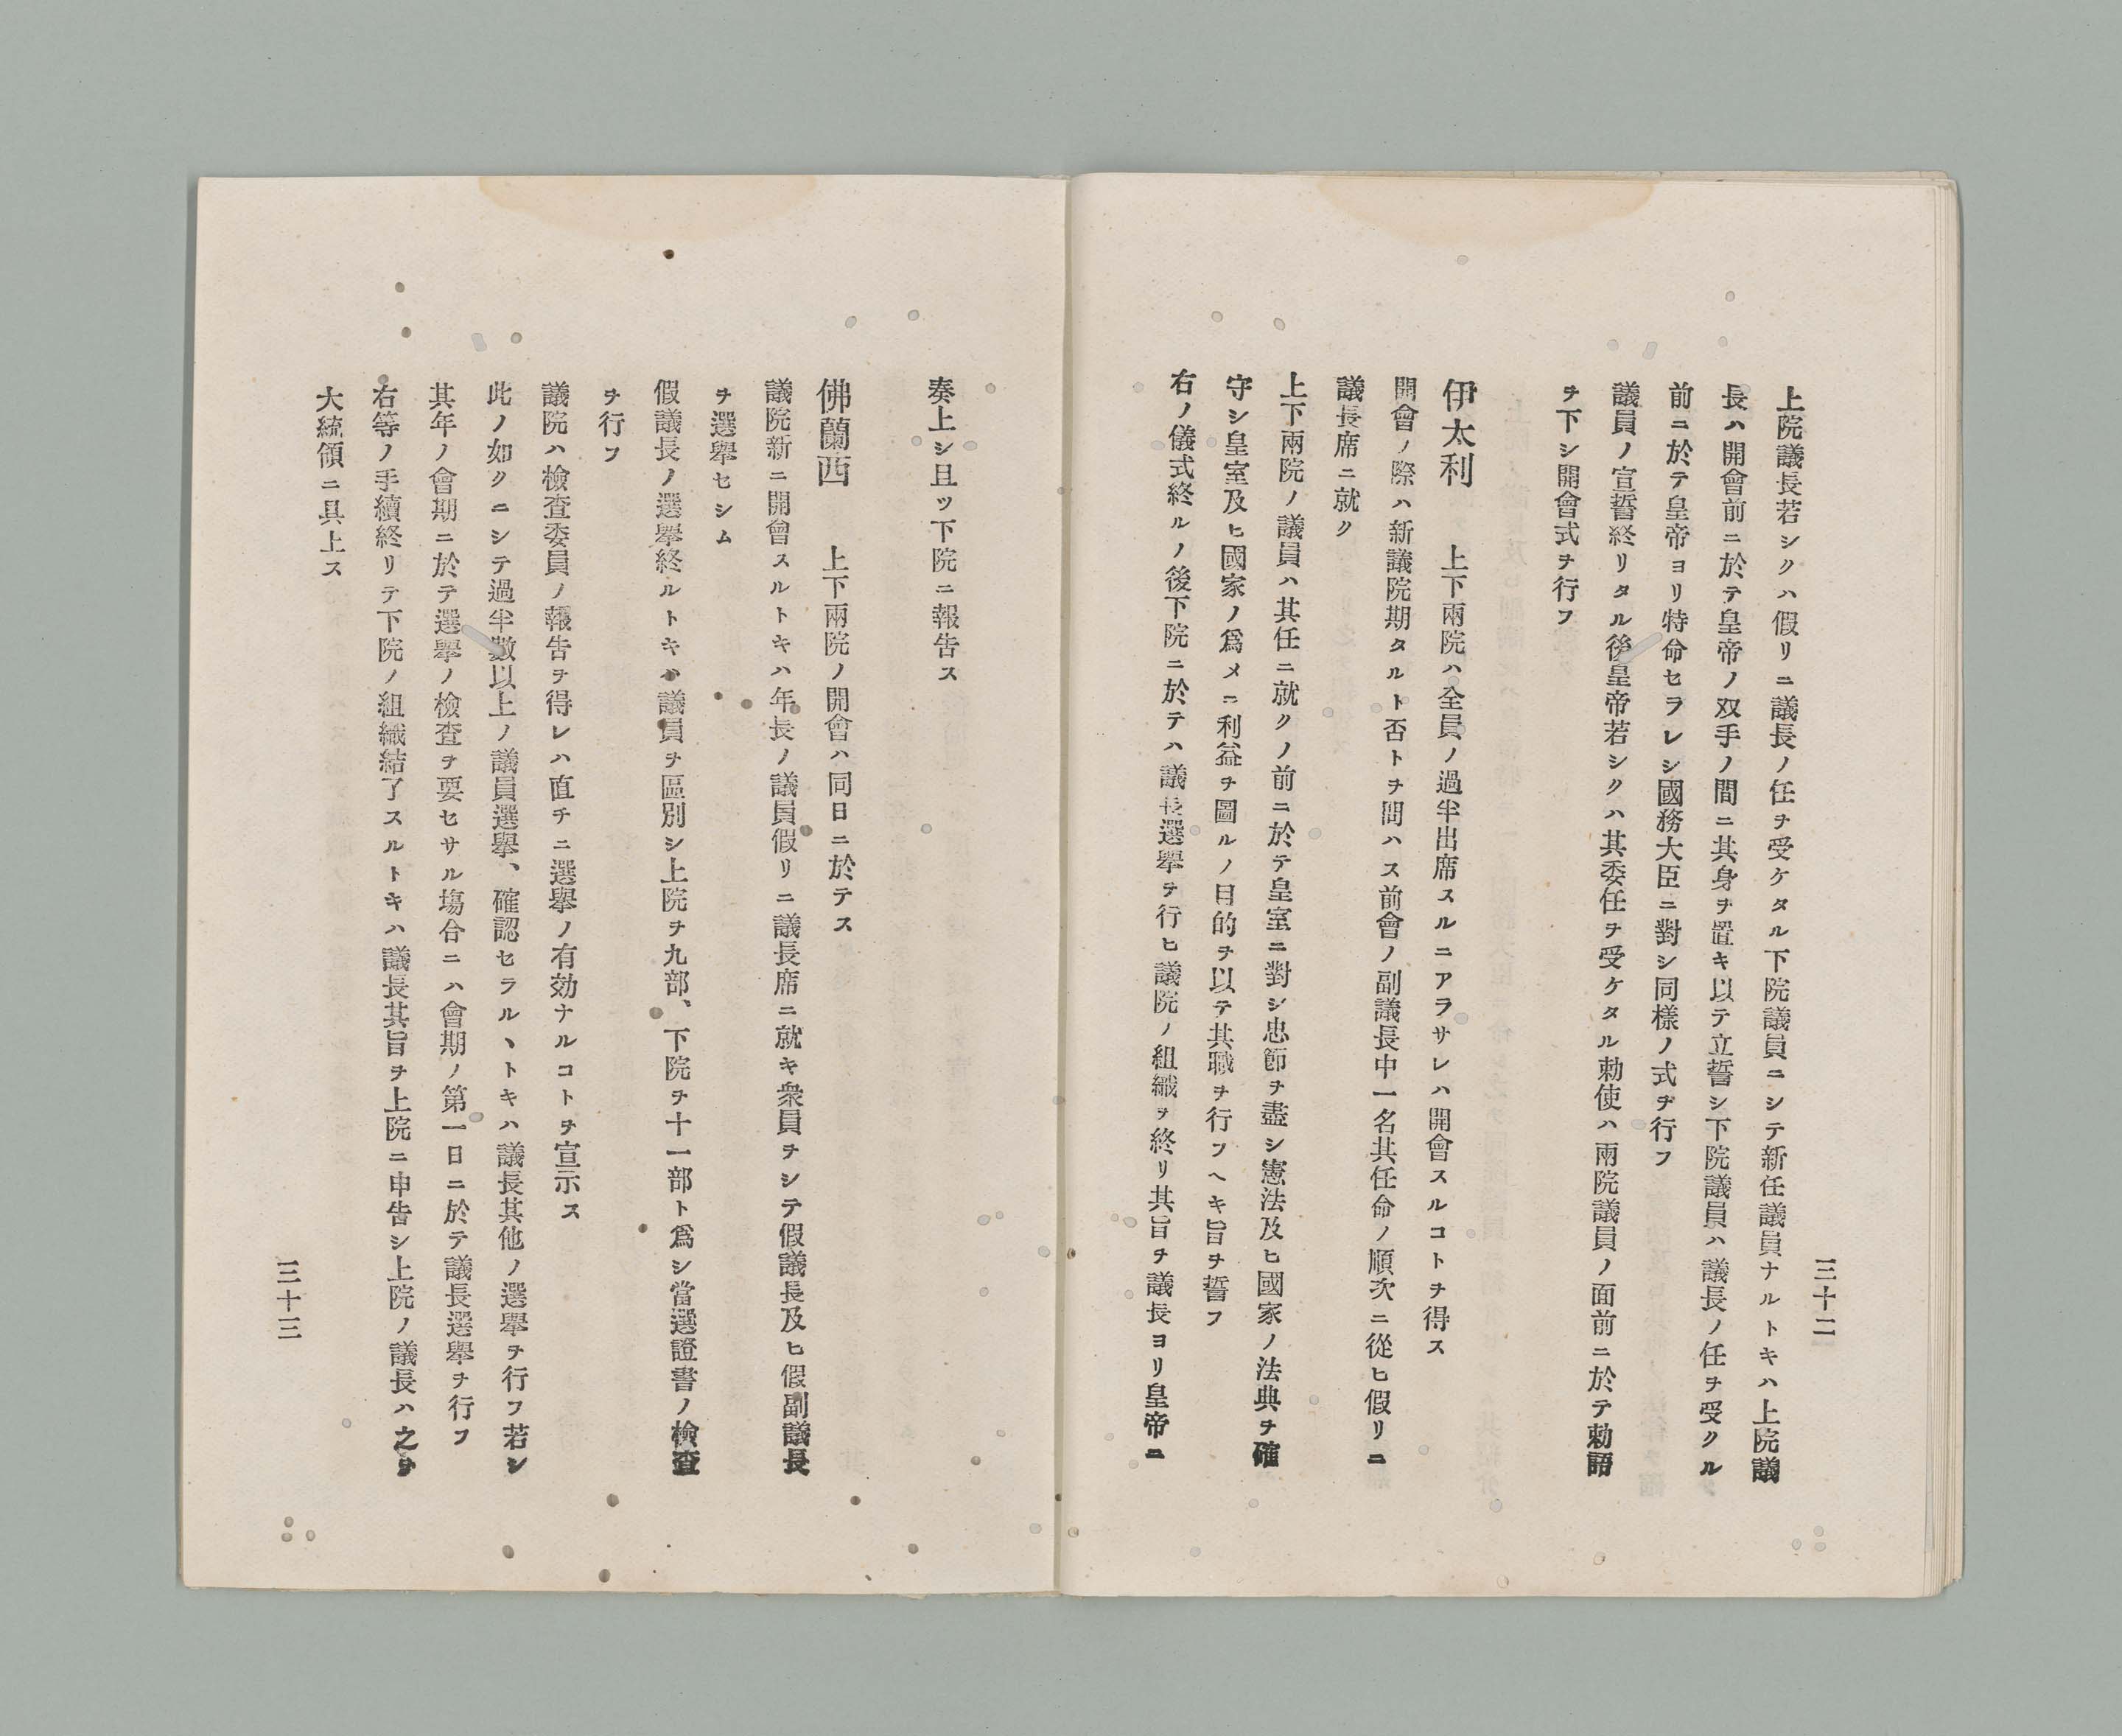 上院議長若シクハ假リニ議長ノ任ヲ受ケタル下院議員ニシテ新任議員ナルトキハ上院議
長ハ開會前ニ於テ皇帝ノ双手ノ間ニ其身ヲ置キ以テ立誓シ下院議員ハ議長ノ任ヲ受クル
前ニ於テ皇帝ヨリ特命セラレシ國務大臣ニ對シ同樣ノ式ヲ行フ
議員ノ宣誓終リタル後皇帝若シクハ其委任ヲ受ケタル勅使ハ兩院議員ノ面前ニ於テ勅語
ヲ下シ開會式ヲ行フ
伊太利　上下兩院ハ全員ノ過半出席スルニアラサレハ開會スルコトヲ得ス
開會ノ際ハ新議院期タルト否トヲ問ハス前會ノ副議長中一名其任命ノ順次ニ從ヒ假リニ
議長席ニ就ク
上下兩院ノ議員ハ其任ニ就クノ前ニ於テ皇室ニ對シ忠節ヲ盡シ憲法及ヒ國家ノ法典ヲ確
守シ皇室及ヒ國家ノ爲メニ利益ヲ圖ルノ目的ヲ以テ其職ヲ行フヘキ旨ヲ誓フ
右ノ儀式終ルノ後下院ニ於テハ議長選擧ヲ行ヒ議院ノ組織ヲ終リ其旨ヲ議長ヨリ皇帝ニ
三十二
奏上シ且ツ下院ニ報告ス
佛蘭西　上下兩院ノ開會ハ同日ニ於テス
議院新ニ開會スルトキハ年長ノ議員假リニ議長席ニ就キ衆員ヲシテ假議長及ヒ假副議長
ヲ選擧セシム
假議長ノ選擧終ルトキハ議員ヲ區別シ上院ヲ九部、下院ヲ十一部ト爲シ當選證書ノ檢査
ヲ行フ
議院ハ檢査委員ノ報告ヲ得レハ直チニ選擧ノ有効ナルコトヲ宣示ス
此ノ如クニシテ過半數以上ノ議員選擧、確認セラルヽトキハ議長其他ノ選擧ヲ行フ若シ
其年ノ會期ニ於テ選擧ノ檢査ヲ要セサル塲合ニハ會期ノ第一日ニ於テ議長選擧ヲ行フ
右等ノ手續終リテ下院ノ組織結了スルトキハ議長其旨ヲ上院ニ申告シ上院ノ議長ハ之ヲ
大統領ニ具上ス
三十三